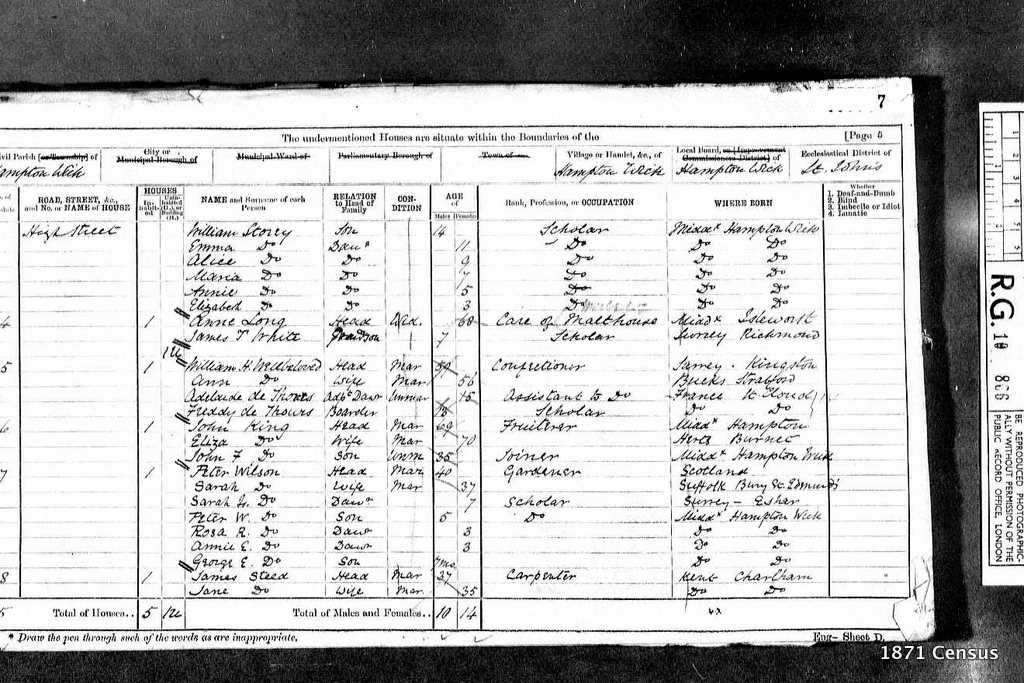 7
The undermentioned Houses are situate within the Boundaries of the [Page 5
Civil Parish [or Township] of City or Municipal Borough of Municipal Ward of Parliamentary Borough of Town of Village or Hamlet, &c., of Local Board, or [Improvement Commissioners District] of Ecclesiastical District of
Hampton Wick Hampton Wick Hampton Wick St. John's
ROAD, STREET, &c., and No. or NAME of HOUSE HOUSES Inhabited Uninhabited (U.), or Building (B.) NAME and Surname of each Person RELATION to Head of Family CONDITION AGE of Males Females Rank, Profession, or OCCUPATION WHERE BORN Whether 1. Deaf-and-Dumb 2. Blind 3. Imbecile or Idiot 4. Lunatic
High Street William Storey Son 14 Scholar Middx Hampton Wick
Emma Do Daur 11 Do Do Do
Alice Do Do 9 Do Do Do
Maria Do Do 7 Do Do Do
Annie Do Do 5 Do Do Do
Elizabeth Do Do 3 Do Do Do
4 1 Anne Long Head Wid. 68 Care of Malthouse Middx Isleworth
James T White Grandson 7 Scholar Surrey Richmond
1U
5 1 William H. Wellbeloved Head Mar 59 Confectioner Surrey. Kingston
Ann Do Wife Mar 56 Bucks Stratford
Adelaide de Thours Adpd Daur Unmar 15 Assistant to Do France St Cloud
Freddy de Thours Boarder 13 Scholar Do Do
6 1 John King Head Mar 69 Fruiterer Middx Hampton
Eliza Do Wife Mar 70 Herts Burnet
John F Do Son Unm 35 Joiner Middx Hampton Wick
7 1 Peter Wilson Head Mar 40 Gardener Scotland
Sarah Do Wife Mar 37 Suffolk Bury St. Edmunds
Sarah Do Daur 7 Scholar Surrey - Esher
Peter W. Do Son 5 Do Middx Hampton Wick
Rosa R. Do Daur 3 Do Do
Annie E. Do Daur 3 Do Do
George E. Do Son 7mo. Do Do
8 1 James Steed Head Mar 37 Carpenter Kent Charlham
Jane Do Wife Mar 35 Do Do
5 Total of Houses.. 5 1U Total of Males and Females.. 10 14
* Draw the pen through such of the words as are inappropriate. Eng- Sheet D.
R.G. 10 866
BE REPRODUCED PHOTOGRAPHIC-
ALLY WITHOUT PERMISSION OF THE
PUBLIC RECORD OFFICE, LONDON
1871 Census